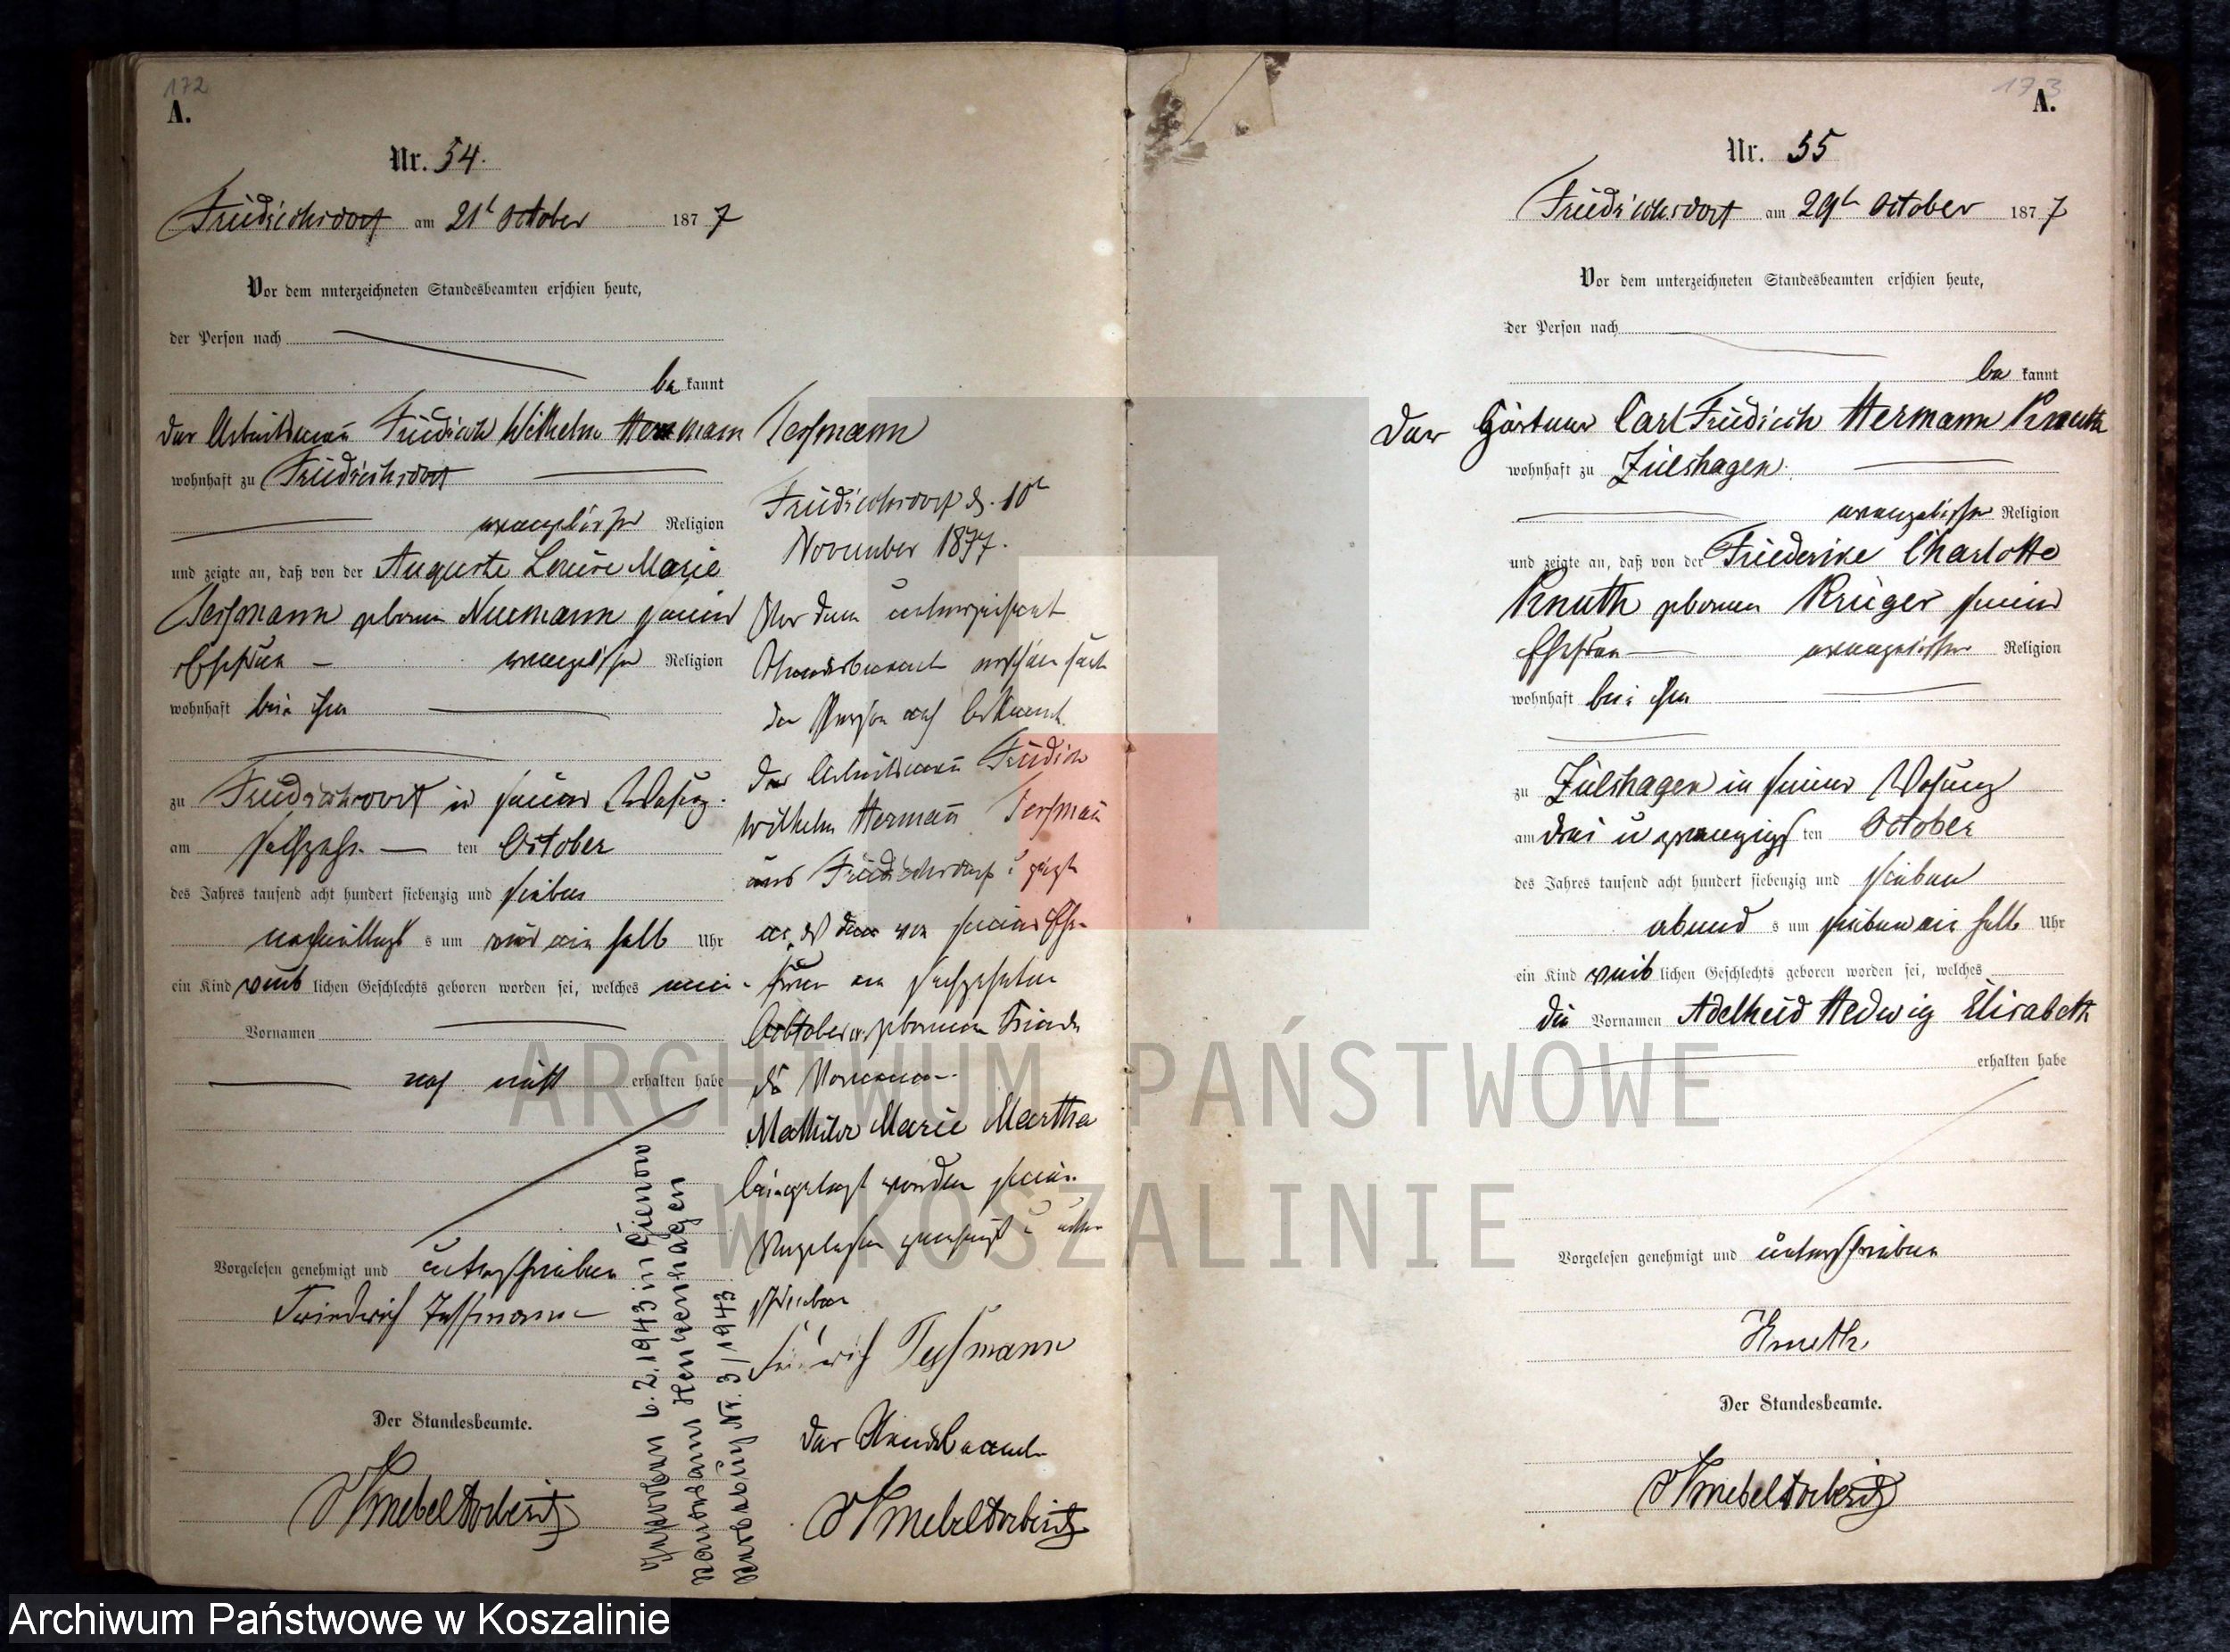 172
A.
Nr. 54.
Friedrichsdorf am 21t October 1877
Vor dem unterzeichneten Standesbeamten erschien heute,
der Person nach
be kannt
der Arbeitsmann Friedrich Wilhelm Hermann Tessmann
wohnhaft zu Friedrichsdorf
evangelischer Religion
und zeigte an, daß von der Auguste Louise Marie
Tessmann geboren Neumann seiner
Ehefrau evangelischer Religion
wohnhaft bei ihm
zu Friedrichsdorf in seiner Wohung
am sechszehn ten October
des Jahres tausend acht hundert siebenzig und sieben
nachmittag s um vier ein halb Uhr
ein Kind weib lichen Geschlechts geboren worden sei, welches einen
Vornamen
noch nicht erhalten habe
Vorgelesen genehmigt und unterschrieben
Friedrich Tessmann
Der Standesbeamte.
Friedrichsdorf d. 10t
November 1877.
Vor dem unterzeichnet
Standesbeamt erschien heut
der Person nach bekannt
der Arbeitsmann Friedrich
Wilhelm Hermann Tessmann
aus Friedrichsdorf u zeigt
an, daß dem von seiner Ehe-
frau am sechszehnten
October cr. geborenen Kinde
die Vornamen
Mathilde Marie Martha
beigelegt worden seien.
Vorgelesen genehmigt u unter
schrieben
Friedrich Tessmann
Der Standesbeamte
Verstorben 6.2.1943 in Gienow
Standesamt Henkenhagen
Nr. 3/1943
173
A.
Nr. 55
Friedrichsdorf am 29t October 1877
Vor dem unterzeichneten Standesbeamten erschien heute,
der Person nach
be kannt
Der Gärtner Carl Friedrich Hermann Knuth
wohnhaft zu Zülshagen
evangelischer Religion
und zeigte an, daß von der Friederike Charlotte
Knuth geborenen Krüger seiner
Ehefrau evangelischer Religion
wohnhaft bei ihm
zu Zülshagen in seiner Wohung
am drei u zwanzigs ten October
des Jahres tausend acht hundert siebenzig und sieben
abend s um sieben ein halb Uhr
ein Kind weib lichen Geschlechts geboren worden sei, welches
die Vornamen Adelheid Hedwig Elisabeth
erhalten habe
Vorgelesen genehmigt und unterschrieben
Knuth
Der Standesbeamte.
ARCHIWUM PAŃSTWOWE
W KOSZALINIE
Archiwum Państwowe w Koszalinie